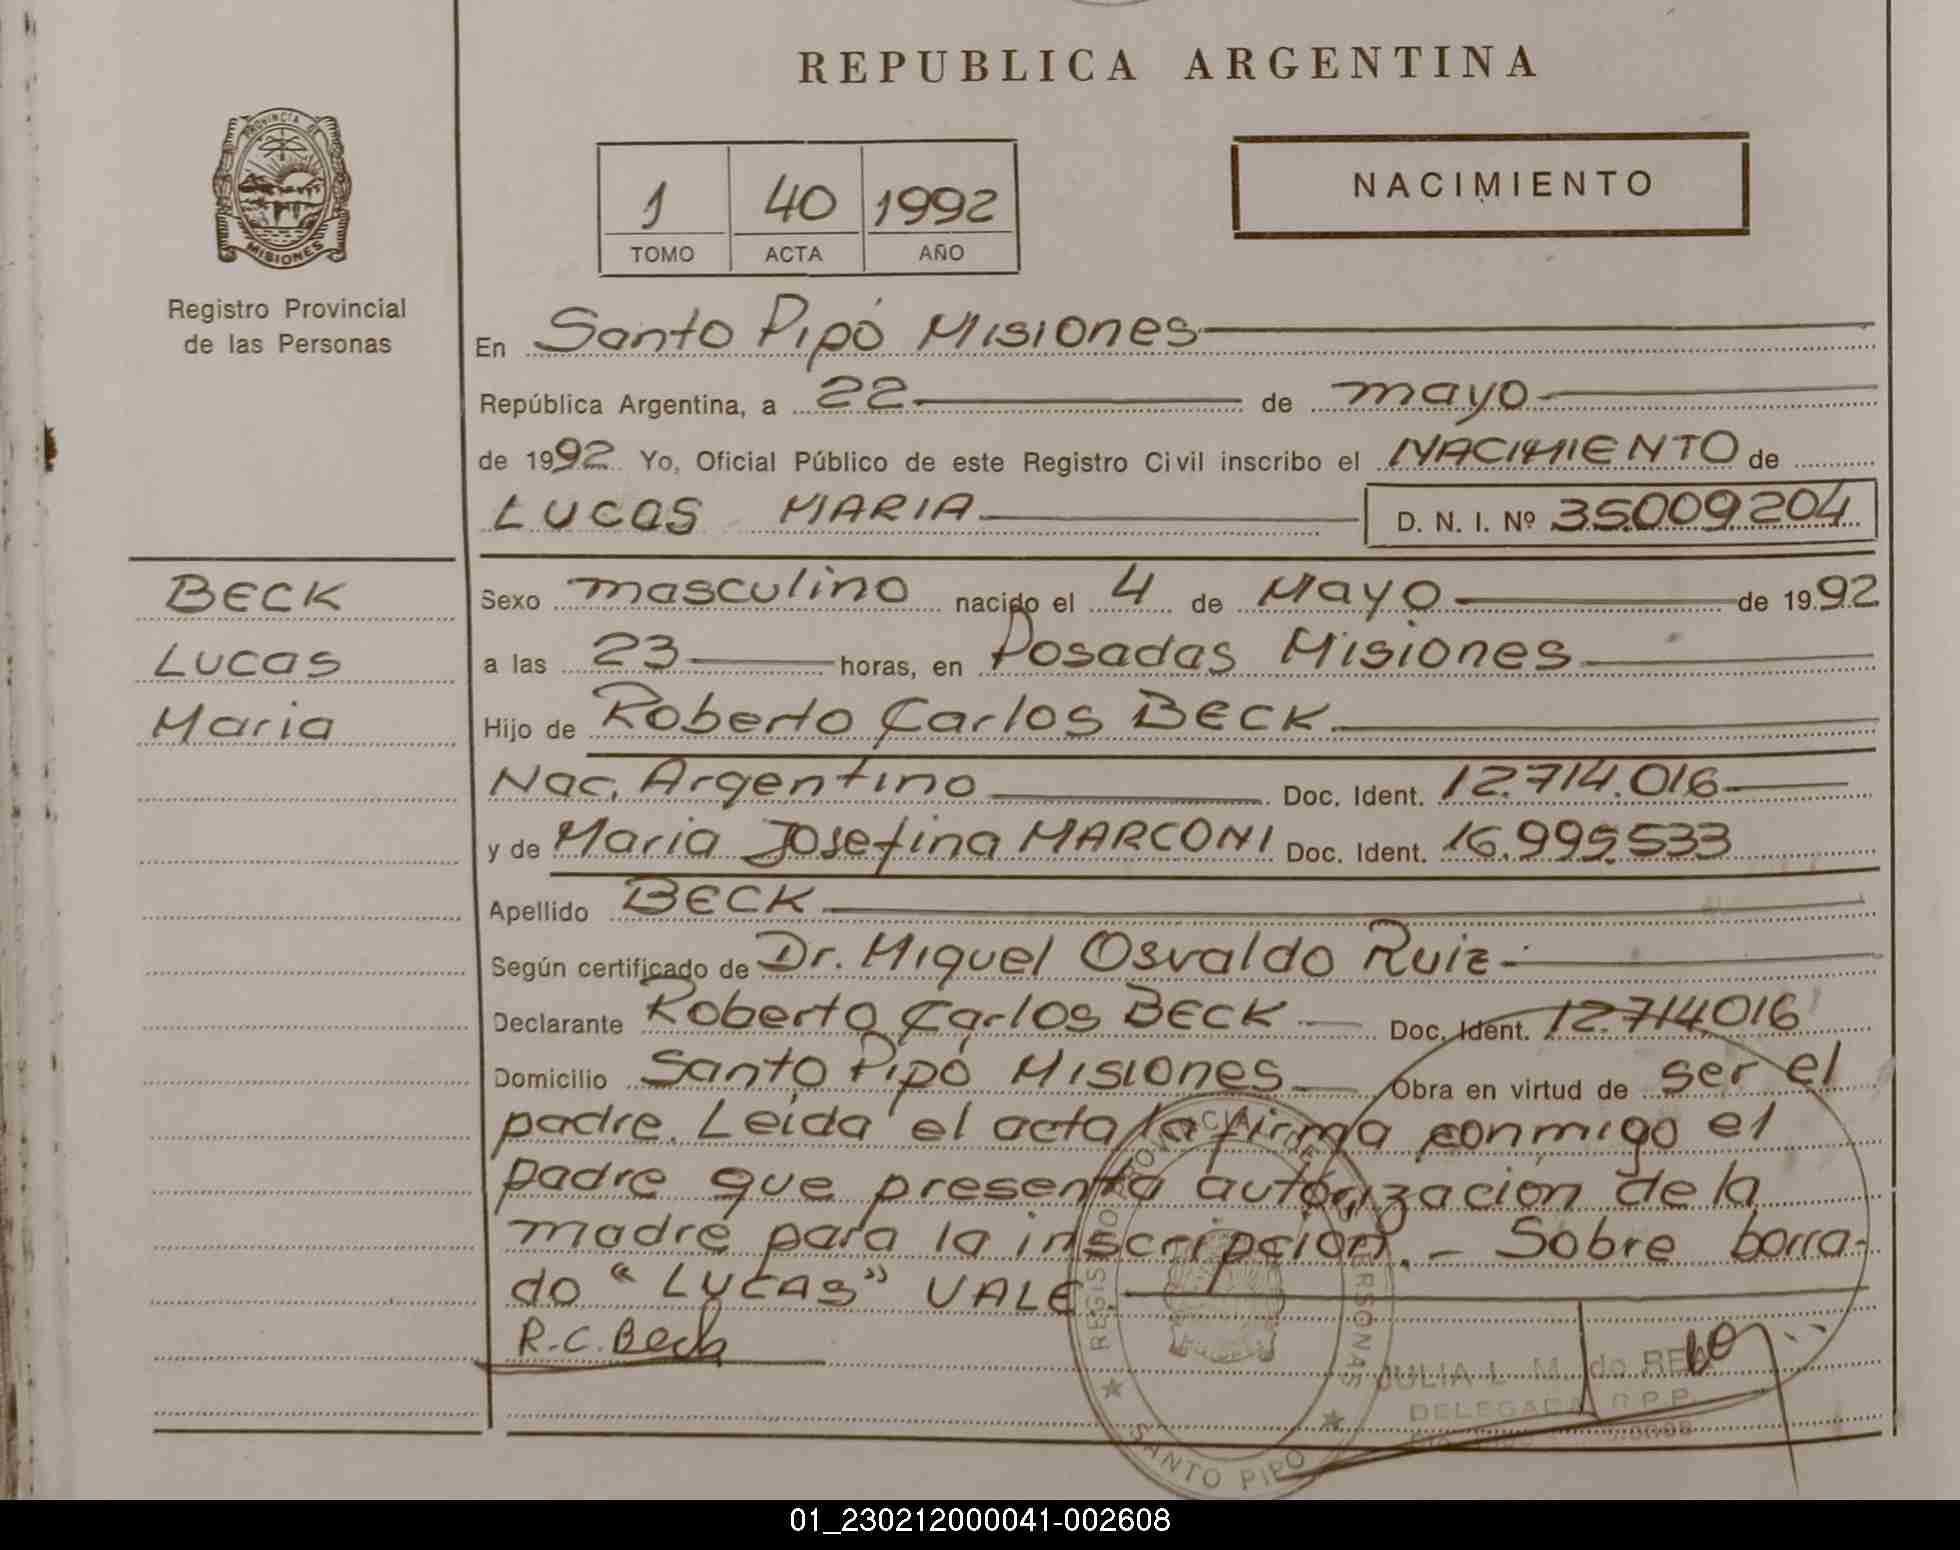 REPUBLICA ARGENTINA
PROVINCIA DE
MISIONES
Registro Provincial
de las Personas
1 40 1992
TOMO ACTA AÑO
NACIMIENTO
En Santo Pipó Misiones
República Argentina, a 22 de mayo
de 1992 Yo, Oficial Público de este Registro Civil inscribo el NACIMIENTO de
LUCAS MARIA D. N. I. Nº 35.009204
BECK
Lucas
Maria
Sexo masculino nacido el 4 de Mayo de 1992
a las 23 horas, en Posadas Misiones
Hijo de Roberto Carlos BECK
Nac. Argentino Doc. Ident. 12.714.016
y de Maria Josefina MARCONI Doc. Ident. 16.995.533
Apellido BECK
Según certificado de Dr. Miguel Osvaldo Ruiz
Declarante Roberto Carlos BECK Doc. Ident. 12.714016
Domicilio Santo Pipó Misiones Obra en virtud de ser el
padre. Leida el acta la firma conmigo el
padre que presenta autorización de la
madre para la inscripción. - Sobre borra-
do "LUCAS" VALE.
R.C. Beck
JULIA L. M. de
DELEGADA R.P.P.
SANTO PIPO
01_230212000041-002608